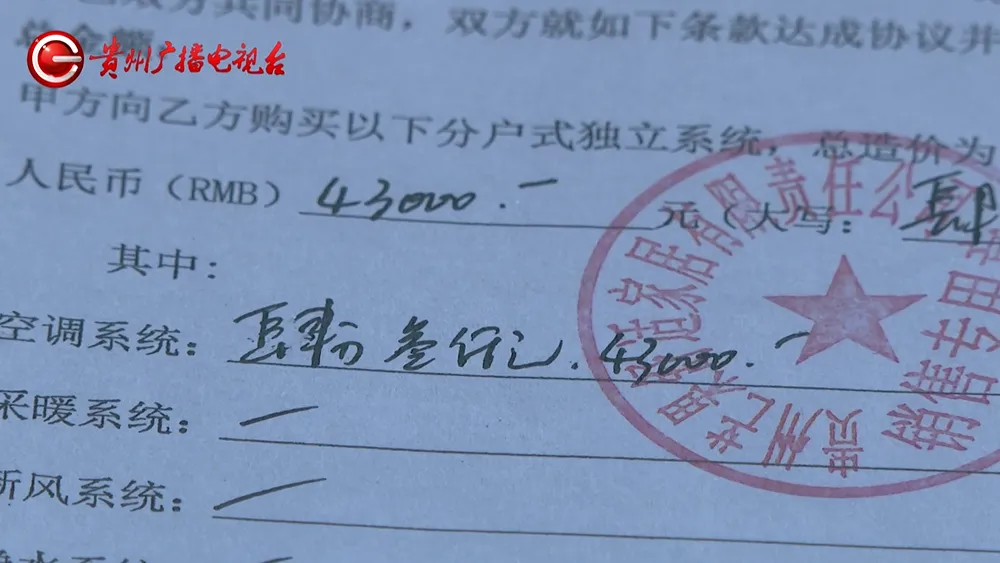 双方共同协商，双方就如下条款达成协议并
总金额
贵州广播电视台
甲方向乙方购买以下分户式独立系统，总造价为
人民币（RMB）43000.一元（大写：肆
其中：
空调系统：肆万叁仟元.43000.一
采暖系统：一
新风系统：一
家居有限责任公司
销售专用章
贵州